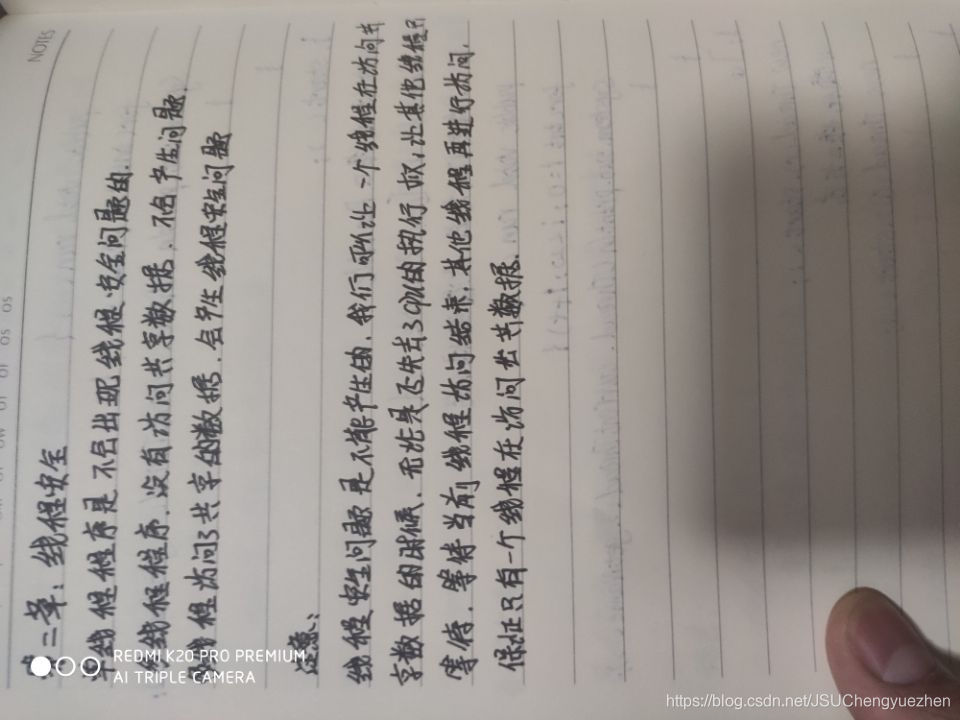 NOTES
第二章：线程安全
单线程程序是不会出现线程安全问题的.
多线程程序.没有访问共享数据.不会产生问题.
多线程访问了共享的数据.会产生线程安全问题
注意：
线程安全问题是不能产生的.我们可以让一个线程在访问共
享数据的时候.无论是否失去了cpu的执行权；让其他线程只
等待.等待当前线程访问结束，其他线程再进行访问.
保证只有一个线程在访问共共数据.
REDMI K20 PRO PREMIUM
AI TRIPLE CAMERA
https://blog.csdn.net/JSUChengyuezhen